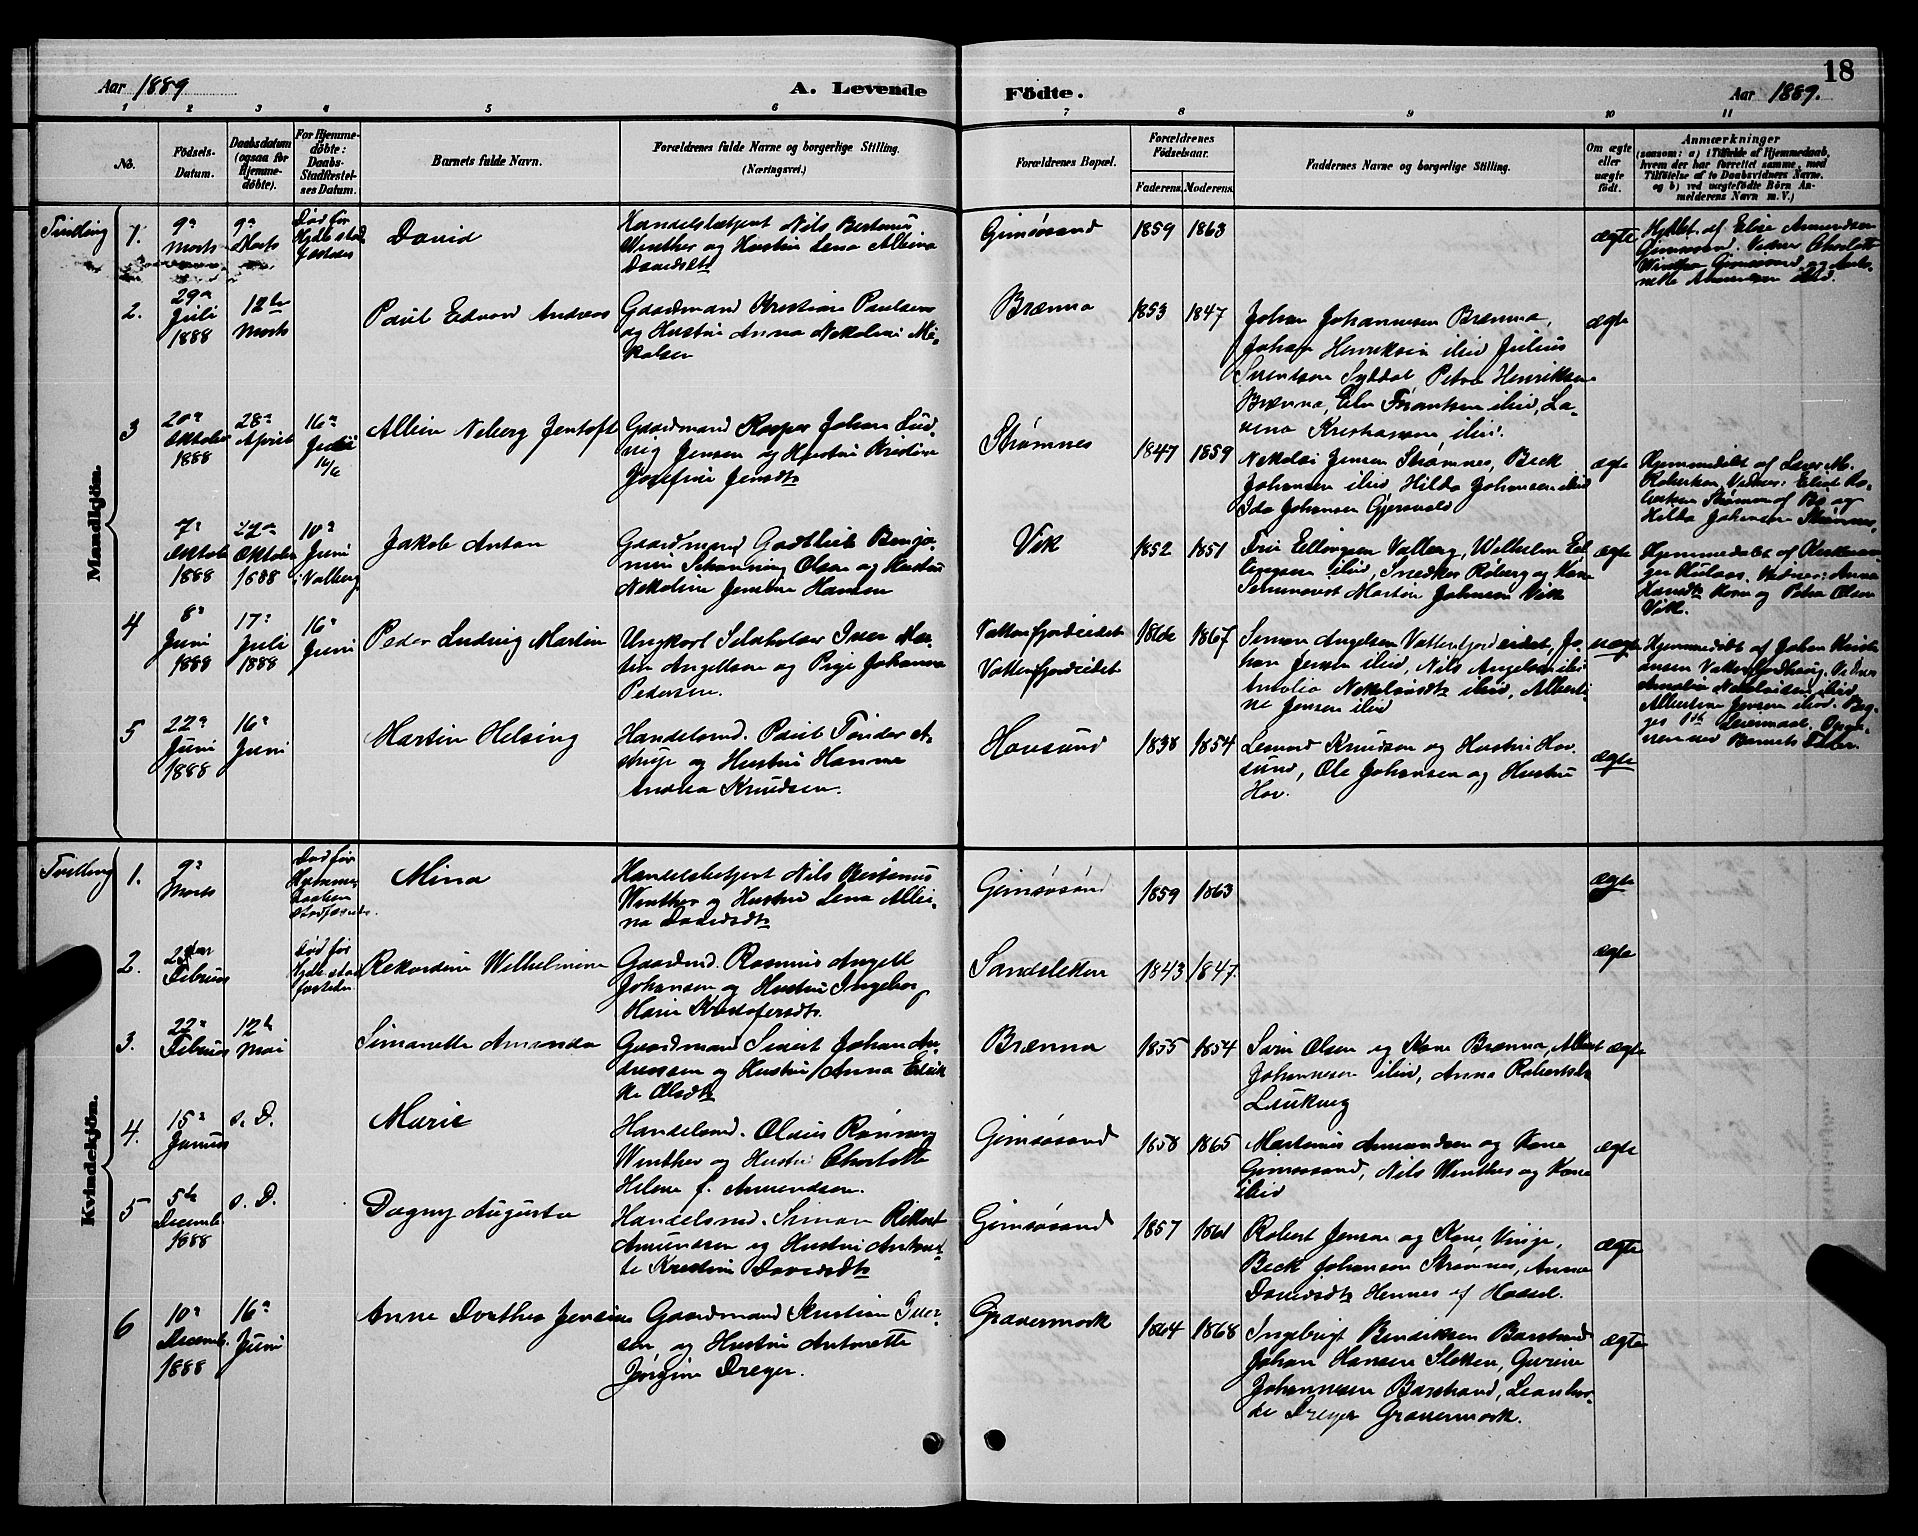 Aar 1889
A. Levende
Födte.
Aar 1889.
18
1 2 3 4 5 6 7 8 9 10 11
No.
Födsels-
Datum.
Daabsdatum
(ogsaa for
Hjemme-
döbte).
For Hjemme-
döbte:
Daabs-
Stadfæstel-
ses Datum.
Barnets fulde Navn.
Forældrenes fulde Navne og borgerlige Stilling.
(Næringsvei.)
Forældrenes Bopæl.
Forældrenes
Födselsaar.
Faderens. Moderens.
Faddernes Navne og borgerlige Stilling.
Om ægte
eller
uægte
födt.
Anmærkninger
(saasom: a) i Tilfælde af Hjemmedaab,
hvem der har forrettet samme, med
Tilföielse af to Daabsvidners Navne,
og b) ved uægtefödte Börn An-
melderens Navn m. V.)
Mandkjön.
Tvilling
1.
9de
Marts
9de
Marts
Död för
Hjdb. stad
fæstedes
David
Handelsbetjent Nils Bertinus
Winther og Hustru Lena Albina
Davidsdtr
Gimsøsand
1859 1863
ægte
Hjdbt. af Elise Amundsen
Gimsøsand. Vidner Charlotte
Winther Gimsøsand og Anto-
nette Amundsen ibid.
2.
29de
Juli
1888
12te
Marts
Paul Edvard Andreas
Gaardmand Kristian Paulsen
og Hustru Anna Nekoline Mi-
kalsen
Brenna
1853 1847
Johan Johannesen Brenna,
Johan Henriksen ibid, Julius
Serentsen Syddal, Petra Henriksen
Brenna, Elen Frantsen ibid, La-
vina Kristiansen ibid.
ægte
3
20de
Oktober
1888
28de
April
16de
Juni
16/6
Albin Neberg Jentoft
Gaardmand Kasper Johan Lud-
vig Jensen og Hustru Kristine
Josefine Jensdtr
Strømnes
1847 1859
Nekolai Jensen Strømnes, Beck
Johansen ibid, Hilda Johansen ibid
Ida Johansen Gjersvold
ægte
Hjemmedøbt af Laver M.
Robertsen, Vidner: Elise Ro-
bertsen Strømnes af Bø og
Hilda Johansen Strømnes.
7de
Oktober
1888
27de
Oktober
1888
10de
Juni
i Valberg
Jakob Anton
Gaardmand Godtlieb Benja-
min Schanning Olsen og Hustru
Nekoline Jensine Hansen
Vik
1852 1851
Fris Ellingsen Valberg, Wilhelm El-
lingsen ibid, Snedker Røberg og Kone
Seminarist Martin Johnsen Vik
ægte
Hjemmedøbt af Kirkesan-
ger Hulaas. Vidner: Anna
Hansdtr Kone og Petra Olsen
Vik.
4
8de
Juni
1888
17de
Juli
1888
16de
Juni
Peder Ludvig Martin
Ungkarl Selvholder Iver Mar-
tin Angellsen og Pige Johanna
Pedersen.
Vatterfjordeidet
Vatterfjordeidet
1866 1867
Simon Angelsen Vatterfjordeidet, Jo-
han Jensen ibid, Nils Angelsen ibid
Amalia Nekolaisdtr ibid, Alberti-
ne Jensen ibid
uægte
Hjemmedøbt af Johan Kristi-
ansen Vatterfjordhaug. Vidner
Amalia Nekolaisen ibid,
Albertine Jensen ibid. Beg-
ges 1ste Leiermaal. Opgi-
veren ved Barnets Fader.
5
22de
Juni
1888
16de
Juni
Martin Helsing
Handelsmd. Paul Tønder A-
strup og Hustru Hanna
Andrea Knudsen.
Hovsund
1838 1854
Lesund Knudsen og Hustru Hov-
sund, Ole Johansen og Hustru
Hov.
ægte
Kvindekjön.
Tvilling
1.
9de
Marts
Död för
Hjemme-
daaben
stadfæstedes.
Mina
Handelsbetjent Nils Bertinus
Winther og Hustru Lena Albi-
na Davidsdtr
Gimsøsand
1859 1863
ægte
2.
Februar
Död för
Hjdb. stad
fæstedes
Rekardine Wilhelmine
Gaardmd. Rasmus Angell
Johansen og Hustru Ingeborg
Marie Kristofersdtr.
Sandsletten
1843 1847.
ægte
3.
22de
Februar
12te
Mai
Simanette Amanda
Gaardmand Sivert Johan An-
dreassen og Hustru Anna Edvik-
ke Olsdtr
Brenna
1855 1854
Sørn Olsen og Kone Brenna, Albert
Johannesen ibid, Anna Robertsdtr
Laukvig
ægte
4.
15de
Januar
s. D.
Marie
Handelsmd. Olaus Rønning
Winther og Hustru Charlotte
Helene f. Amundsen.
Gimsøsand
1858 1865
Martinus Amundsen og Kone
Gimsøsand, Nils Winther og Kone
ibid
ægte
5
5te
Decembr.
1888
s. D.
Dagny Augusta
Handelsmd. Simon Rikart
Amundsen og Hustru Antonet-
te Kristine Davidsdtr
Gimsøsand
1857 1861
Robert Jensen og Kone Vinje,
Beck Johansen Strømnes, Anna
Davidsdtr Hennes af Hassel.
ægte
6
10de
Decemb.
1888
16de
Juni
Anne Dorthea Jensine
Gaardmand Kristian Iver-
sen, og Hustru Antonette
Jørgine Dreyer.
Gravermark
1864 1868
Ingebrigt Bendiksen Barstrand
Johan Hansen Sletten, Gurine
Johannesen Barstrand, Leonhar-
de Dreyer Gravermark.
ægte